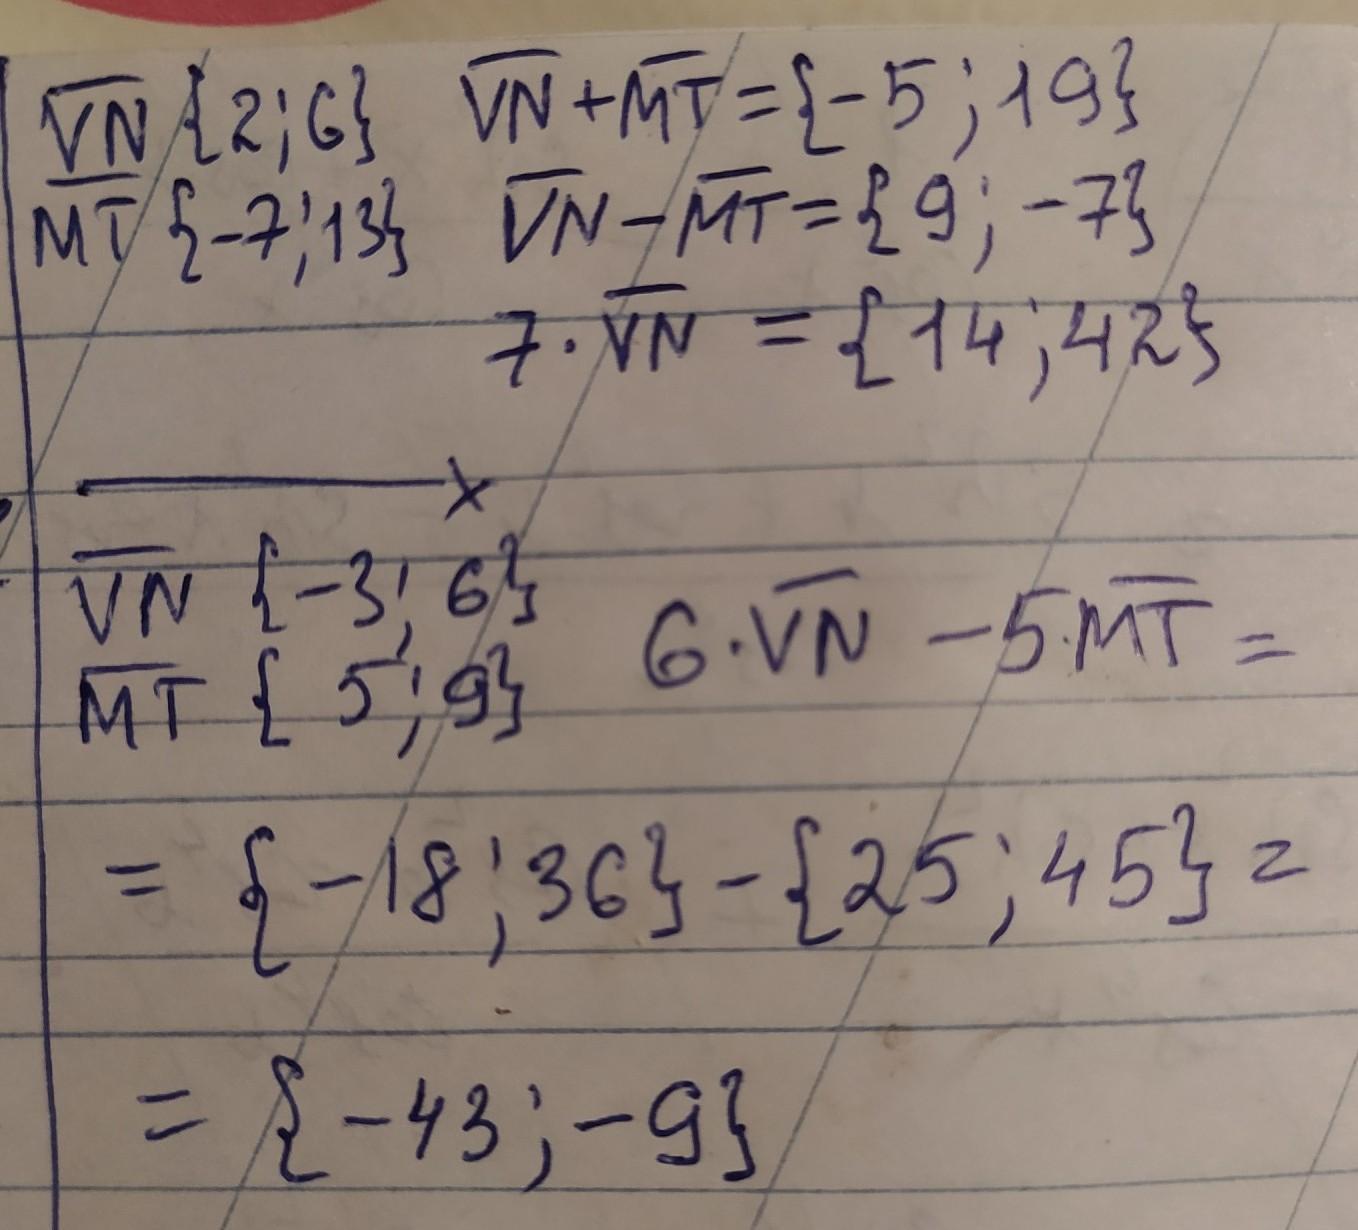 V̅N̅ {2;6} V̅N̅+M̅T̅={-5;19}
M̅T̅ {-7;13} V̅N̅-M̅T̅={9;-7}
7·V̅N̅ = {14;42}
V̅N̅ {-3;6}
M̅T̅ {5;9} 6·V̅N̅ -5·M̅T̅ =
= {-18;36}-{25;45}=
= {-43;-9}